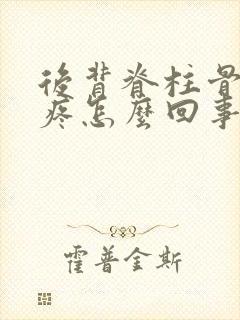 後背脊柱骨
疼怎麼回事
霍普金斯